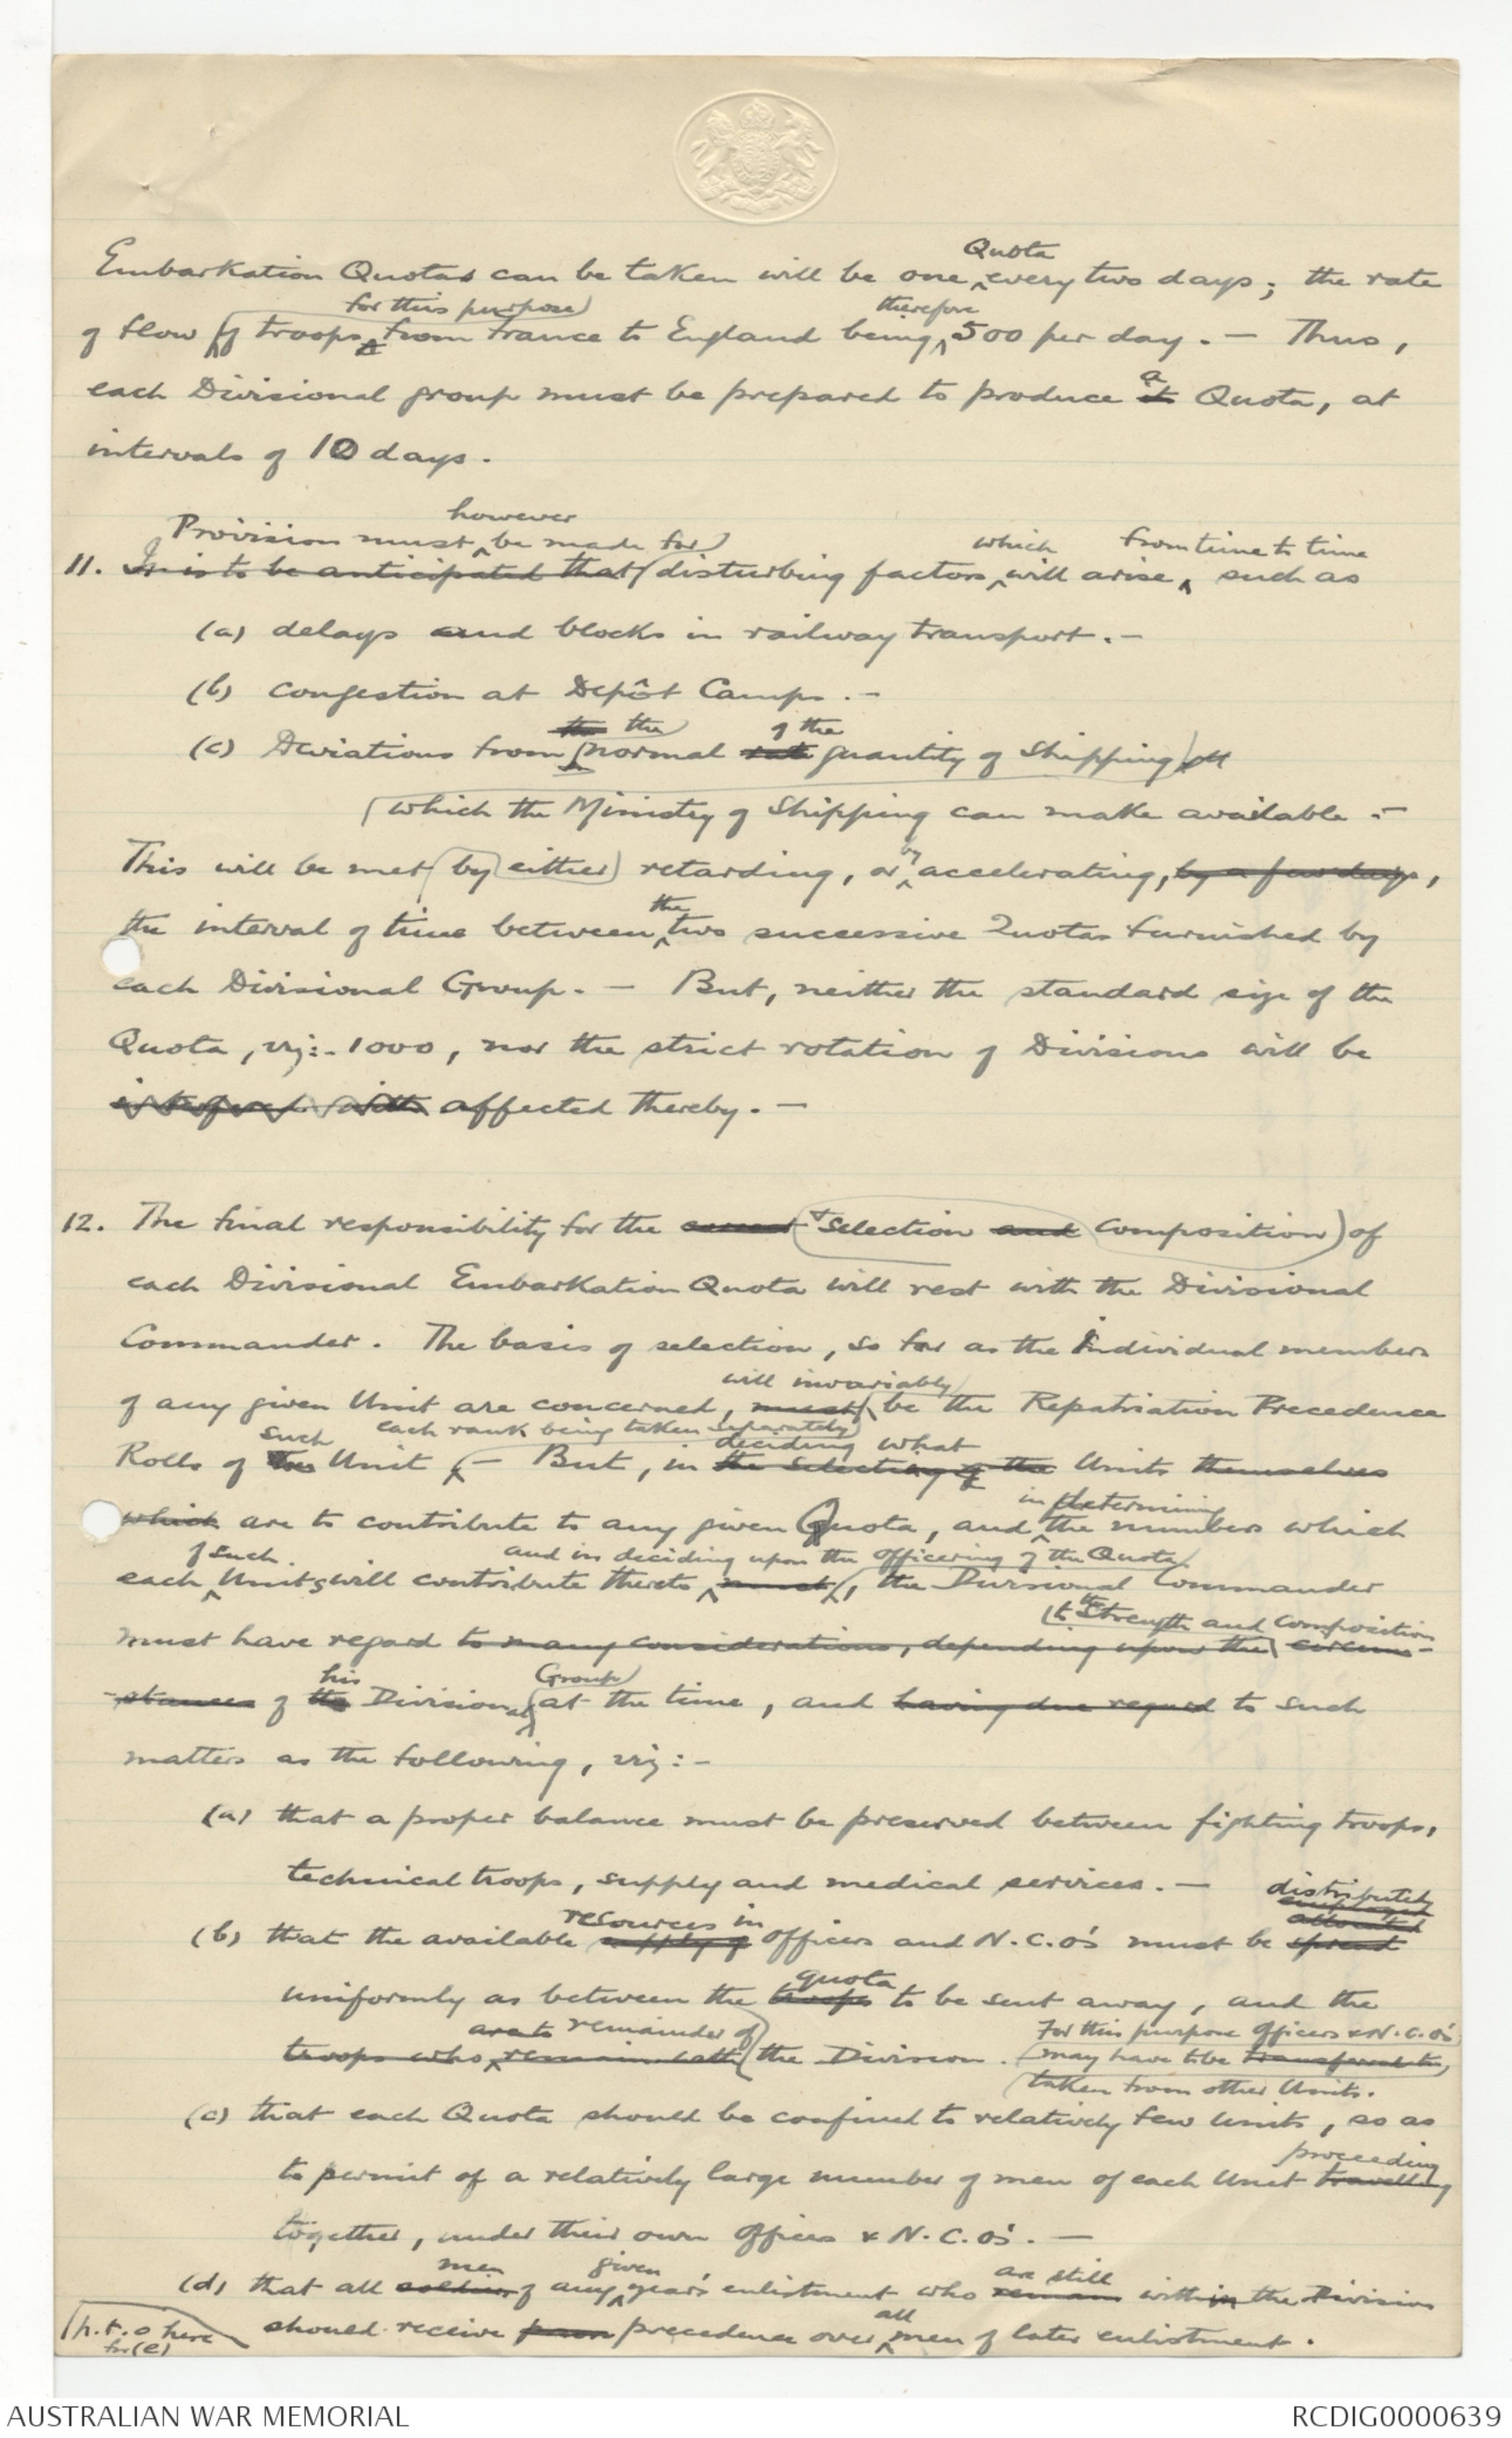 Quota
Embarkation Quotas can be taken will be one ^ every two days; the rate
for this purpose therefore
of flow of troops ^ from France to England being ^ 500 per day. — Thus,
a
each Divisional group must be prepared to produce Quota, at
intervals of 10 days.
however
Provision must ^ be made for which from time to time
11. It is to be anticipated that disturbing factors ^ will arise ^, such as
(a) delays and blocks in railway transport. —
(b) congestion at Depôt Camps. —
the the of the
(c) Deviations from normal rate quantity of Shipping
which the Ministry of Shipping can make available. —
by
This will be met by either retarding, or ^ accelerating, by a few days,
the
the interval of time between ^ two successive Quotas furnished by
each Divisional Group. — But, neither the standard size of the
Quota, viz:- 1000, nor the strict rotation of Divisions will be
interfered with affected thereby. —
12. The final responsibility for the correct & selection and composition of
each Divisional Embarkation Quota will rest with the Divisional
Commander. The basis of selection, so far as the individual members
will invariably
of any given Unit are concerned, must be the Repatriation Precedence
such each rank being taken separately deciding what
Rolls of the Unit ^ — But, in the selecting of the Units themselves
in determining
which are to contribute to any given Quota, and ^ the numbers which
of such and in deciding upon the officering of the Quota
each ^ Units will contribute thereto ^ must, the Divisional Commander
to the Strength and Composition
must have regard to many considerations, depending upon the circum-
his Group
-stances of the Divisional at the time, and having due regard to such
matters as the following, viz:-
(a) that a proper balance must be preserved between fighting troops,
technical troops, supply and medical services. —
distributed
employed
resources in allocated
(b) that the available supply of officers and N.C.O's must be spread
quota
uniformly as between the troops to be sent away, and the
are to remainder of For this purpose Officers & N.C.O's
troops who ^ remain with the Division. may have to be transferred to,
taken from other Units.
(c) that each Quota should be confined to relatively few units, so as
proceeding
to permit of a relatively large number of men of each Unit travelling
together, under their own Officers & N.C.O's. —
men given are still
(d) that all soldiers of any ^ year's enlistment who remain within the Division
all
should receive precedence over ^ men of later enlistment.
p.t.o here
for (e)
AUSTRALIAN WAR MEMORIAL
RCDIG0000639